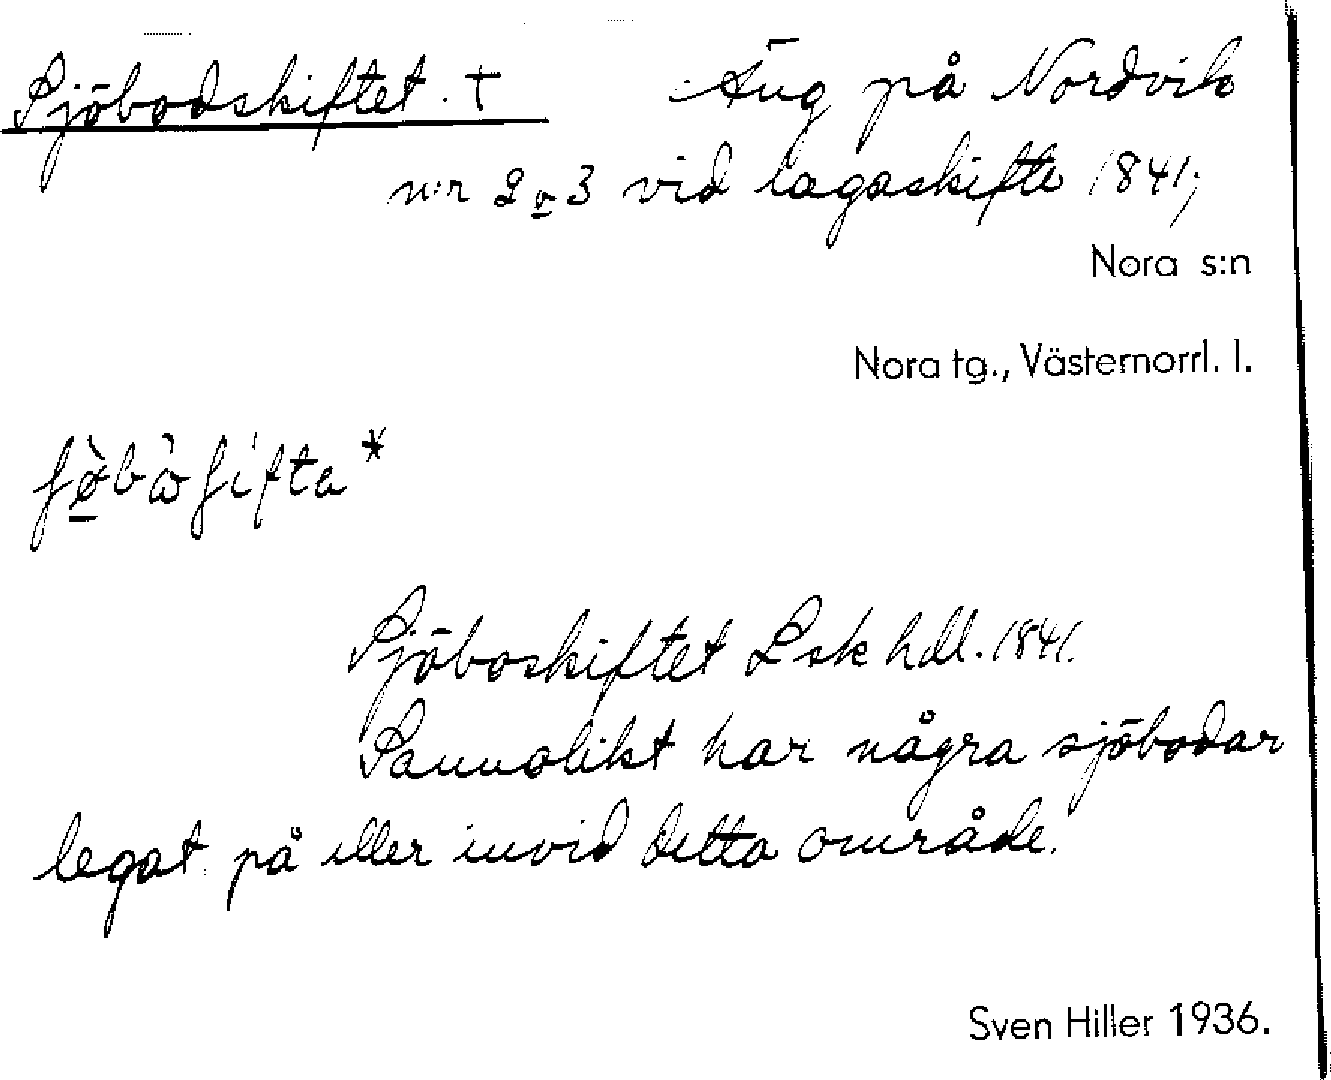 Sjöbodskiftet. † Äng på Nordvik
n:r 2 o 3 vid lagaskifte 1841;
Nora s:n
Nora tg., Västernorrl. l.
Sjöboskiftet Lsk hdl. 1841.
Sannolikt har några sjöbodar
legat på eller invid detta område.
Sven Hiller 1936.